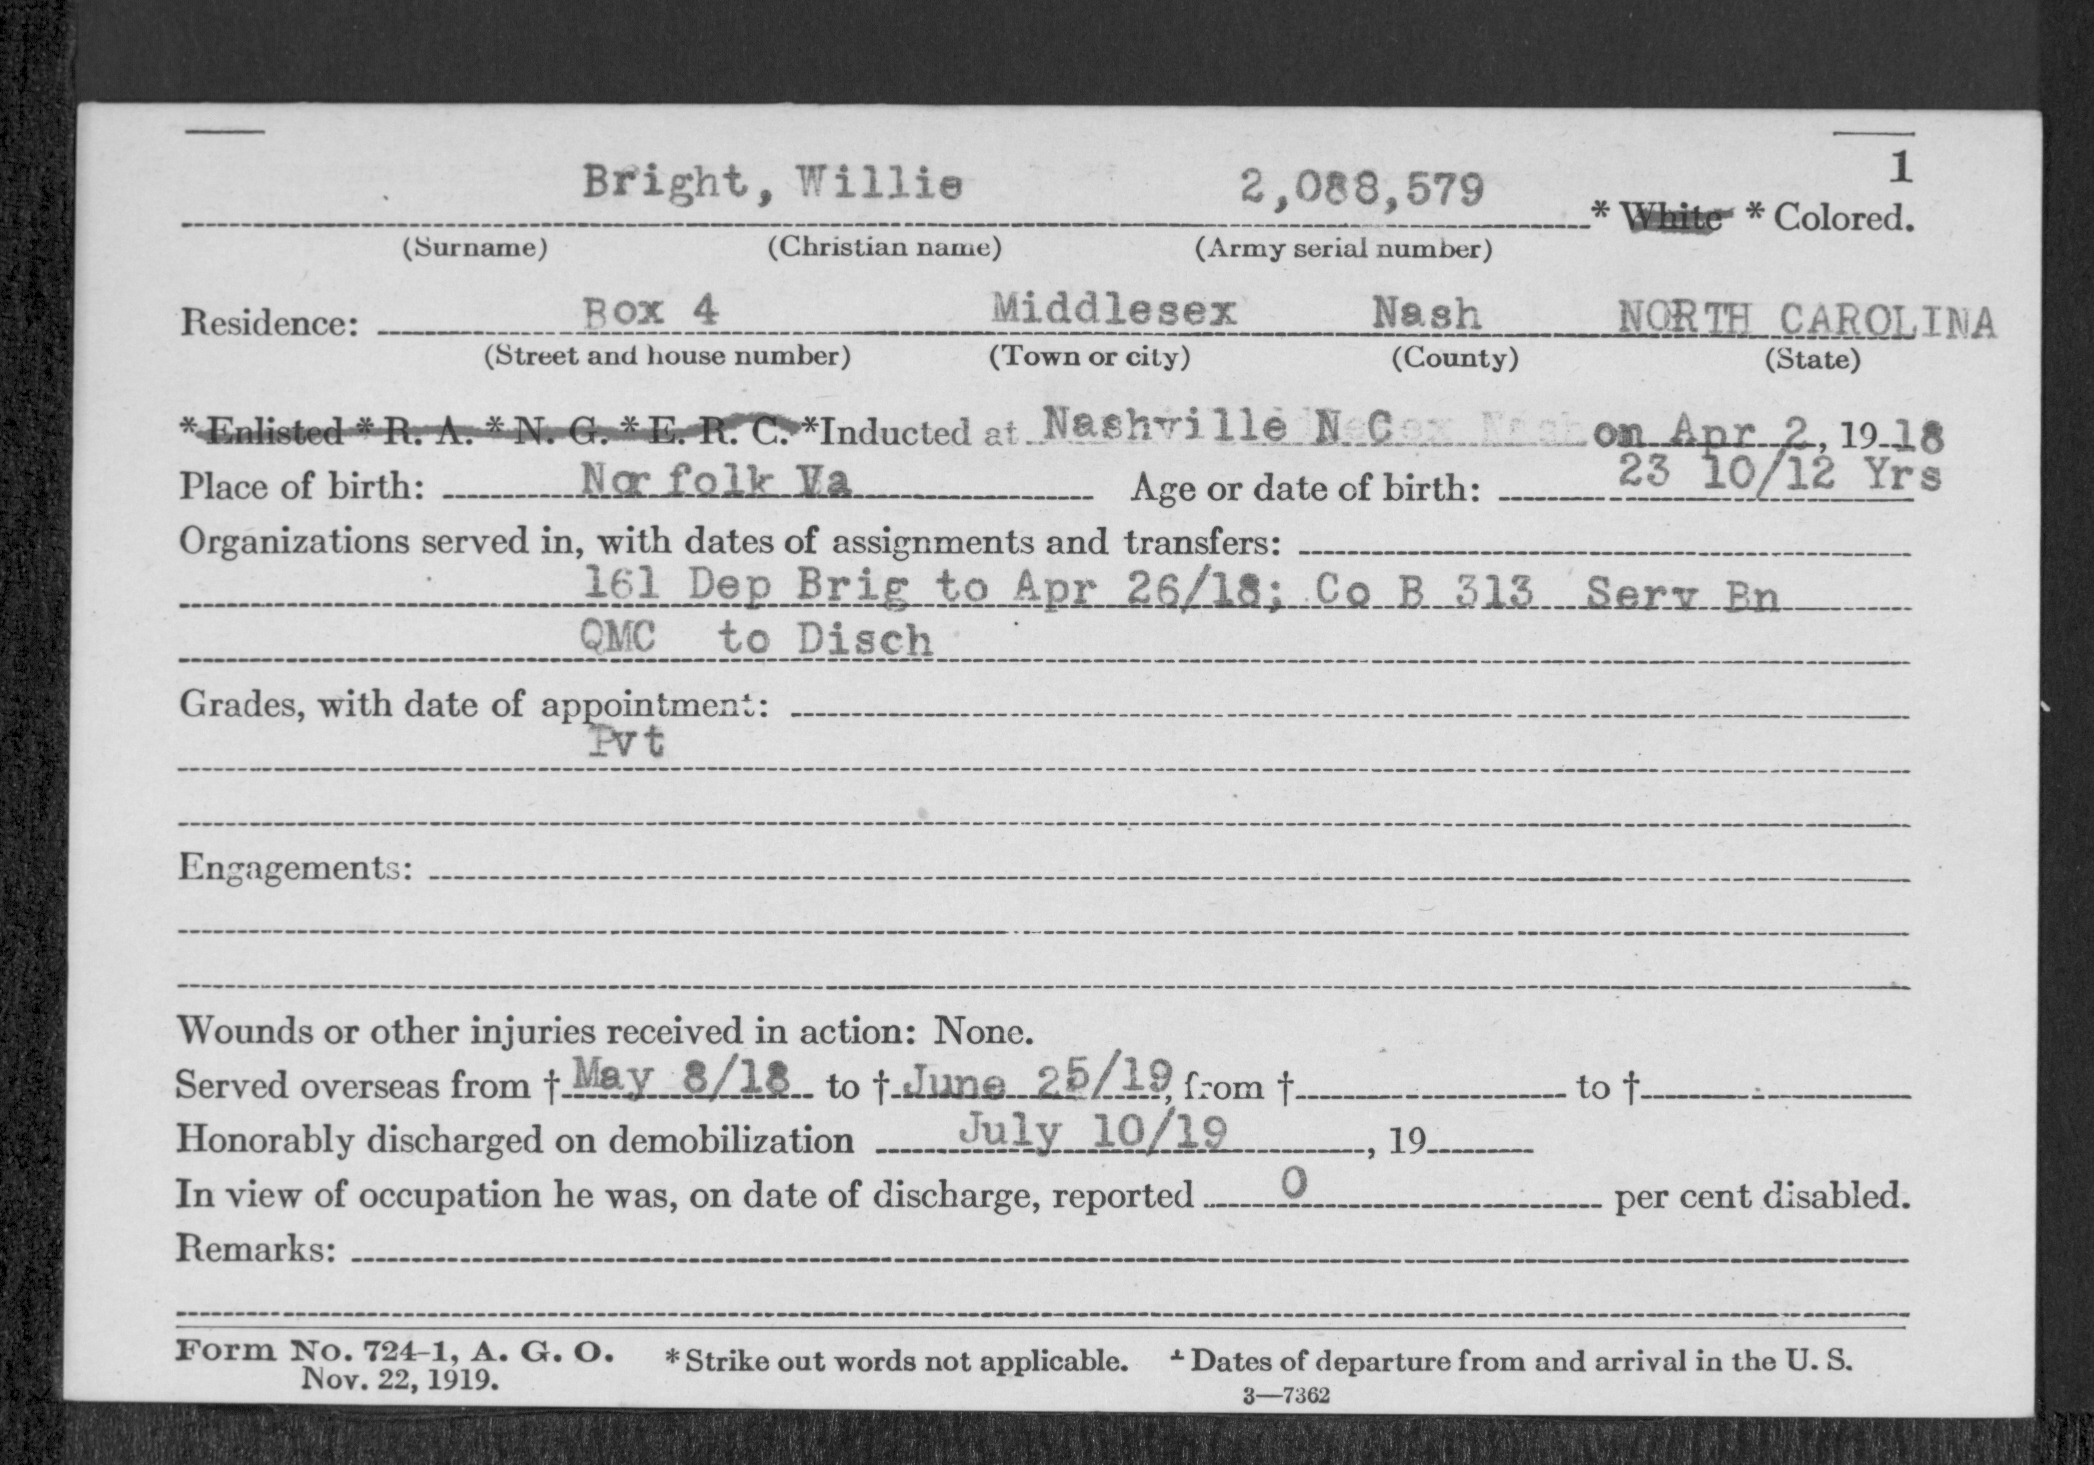 1
Bright, Willie 2,088,579 * White * Colored.
(Surname) (Christian name) (Army serial number)
Residence: Box 4 Middlesex Nash NORTH CAROLINA
(Street and house number) (Town or city) (County) (State)
* Enlisted * R. A. * N. G. * E. R. C. *Inducted at Nashville N C on Apr 2, 1918
Place of birth: Norfolk Va Age or date of birth: 23 10/12 Yrs
Organizations served in, with dates of assignments and transfers:
161 Dep Brig to Apr 26/18; Co B 313 Serv Bn
QMC to Disch
Grades, with date of appointment:
Pvt
Engagements:
Wounds or other injuries received in action: None.
Served overseas from † May 8/18 to † June 25/19, from † to †
Honorably discharged on demobilization July 10/19, 19
In view of occupation he was, on date of discharge, reported 0 per cent disabled.
Remarks:
Form No. 724-1, A. G. O. * Strike out words not applicable. † Dates of departure from and arrival in the U. S.
Nov. 22, 1919.
3—7362